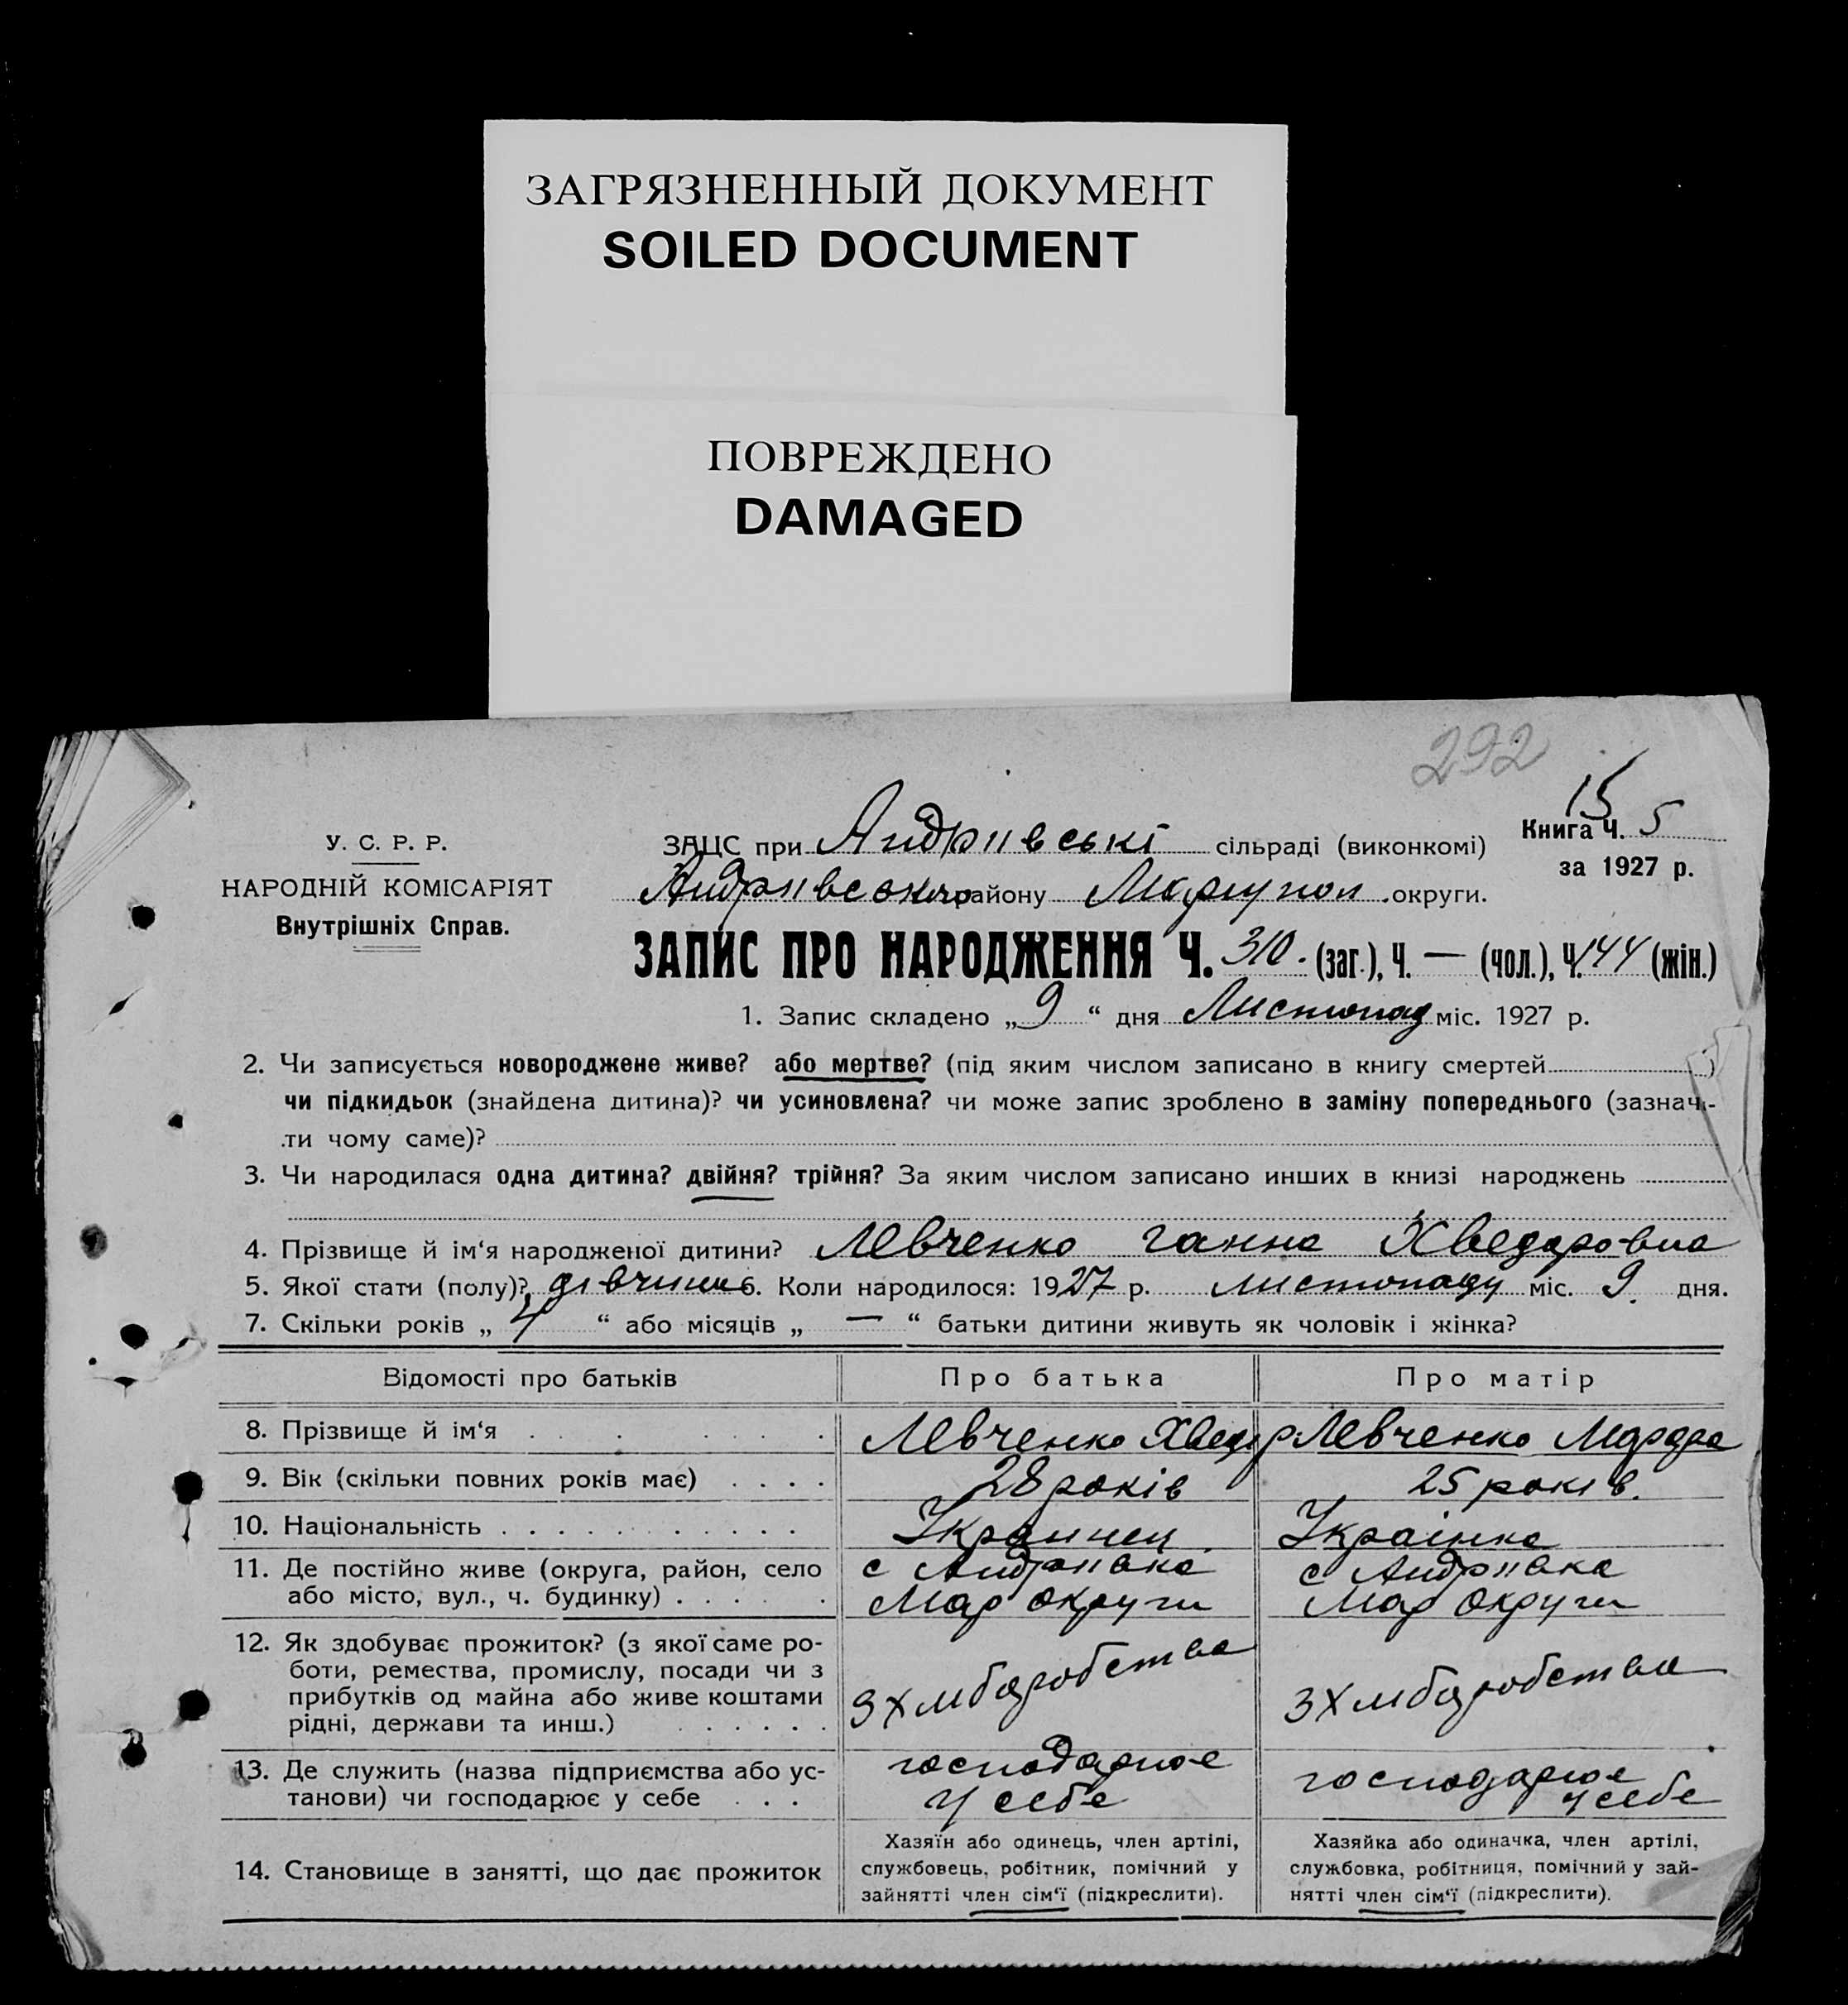 ЗАГРЯЗНЕННЫЙ ДОКУМЕНТ
SOILED DOCUMENT
ПОВРЕЖДЕНО
DAMAGED
292
15
У. С. Р. Р.
НАРОДНІЙ КОМІСАРІЯТ
Внутрішніх Справ.
ЗАЦС при Андріївські сільраді (виконкомі)
Книга Ч. 5
за 1927 р.
Андріівського району Маріупол. округи.
ЗАПИС ПРО НАРОДЖЕННЯ Ч. 310. (заг.), Ч. — (чол.), Ч. 144 (жін.)
1. Запис складено „ 9 “ дня Листопад міс. 1927 р.
2. Чи записується новороджене живе? або мертве? (під яким числом записано в книгу смертей )
чи підкидьок (знайдена дитина)? чи усиновлена? чи може запис зроблено в заміну попереднього (зазначи-
ти чому саме)?
3. Чи народилася одна дитина? двійня? трійня? За яким числом записано инших в книзі народжень
4. Прізвище й ім‘я народженої дитини? Левченко Ганна Хведоровна
5. Якої стати (полу)? дівчина 6. Коли народилося: 1927 р. листопаду міс. 9. дня.
7. Скільки років „ 4 “ або місяців „ — “ батьки дитини живуть як чоловік і жінка?
Відомості про батьків Про батька Про матір
8. Прізвище й ім‘я Левченко Хведір Левченко
9. Вік (скільки повних років має) 28 років 25 років.
10. Національність Украинец Украінка
11. Де постійно живе (округа, район, село с Андріівка с Андріівка
або місто, вул., ч. будинку) Мар Округи Мар Округи
12. Як здобуває прожиток? (з якої саме ро-
боти, ремества, промислу, посади чи з
прибутків од майна або живе коштами
рідні, держави та инш.)
З Хліборобства З Хліборобства
13. Де служить (назва підприємства або ус- господарює господарює
танови) чи господарює у себе у себе у себе
14. Становище в занятті, що дає прожиток
Хазяїн або одинець, член артілі,
службовець, робітник, помічний у
зайнятті член сім‘ї (підкреслити).
Хазяйка або одиначка, член артілі,
службовка, робітниця, помічний у зай-
нятті член сім‘ї (підкреслити).